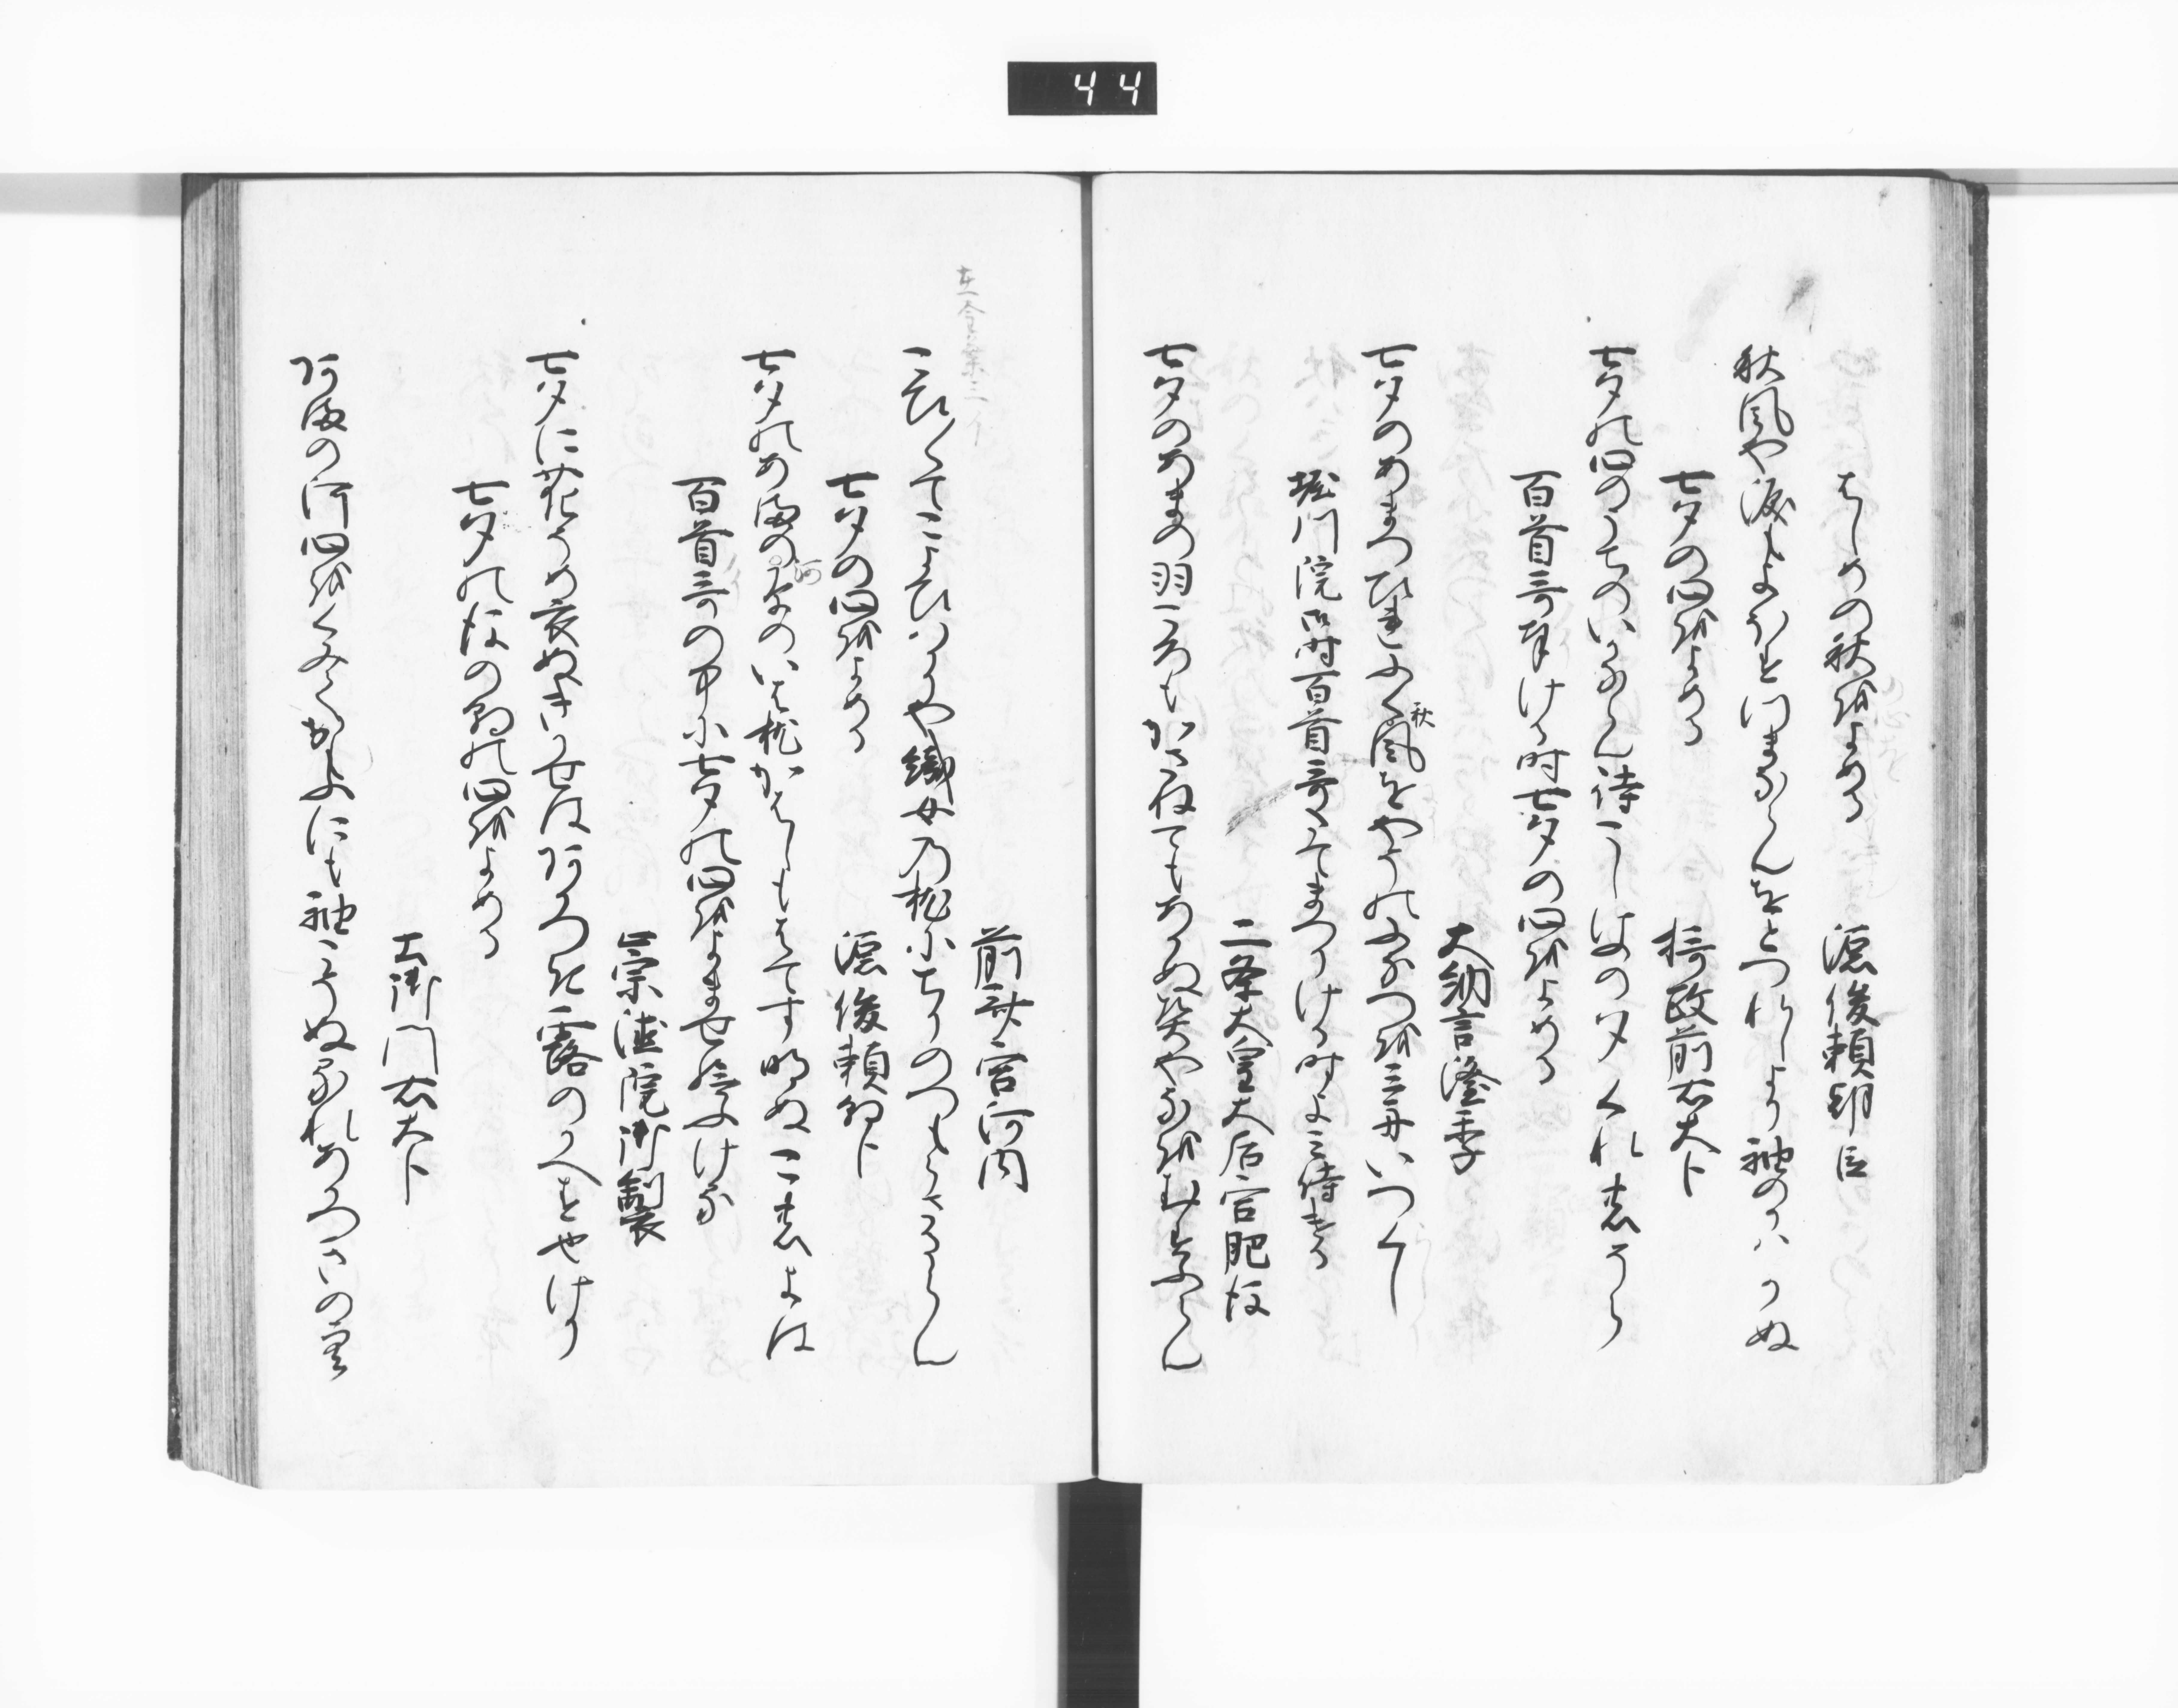 44
はしめの秋をよめる
源俊頼朝臣
秋風や涙もよほすつまならんをとつれしより袖のかはかぬ
七夕の心をよめる
摂政前右大臣
七夕の心のうちやいかならん待こしけふの夕くれの空
百首哥奉ける時七夕の心をよめる
大納言隆季
七夕のあまつひれふく秋風にやそのふなつをみふねいつらし
堀川院御時百首哥たてまつりける時よみ侍ける
二条太皇太后宮肥後
七夕のあまの羽衣かさねてもあかぬ契やなをむすふらん
前斎宮河内
こひ〳〵てこよひはかりや織女の枕にちりのつもらさるらん
在金葉三イ
七夕の心をよめる
源俊頼朝臣
七夕のあまの河原のいは枕かはしもはてす明ぬこのよは
百首哥の中に七夕の心をよませ給ふける
崇徳院御製
七夕に花そめ衣ぬきかせは暁露のかへすなりけり
七夕の後の朝の心をよめる
土御門右大臣
天の河心をくみておもふにも袖こそぬるれあかつきの空